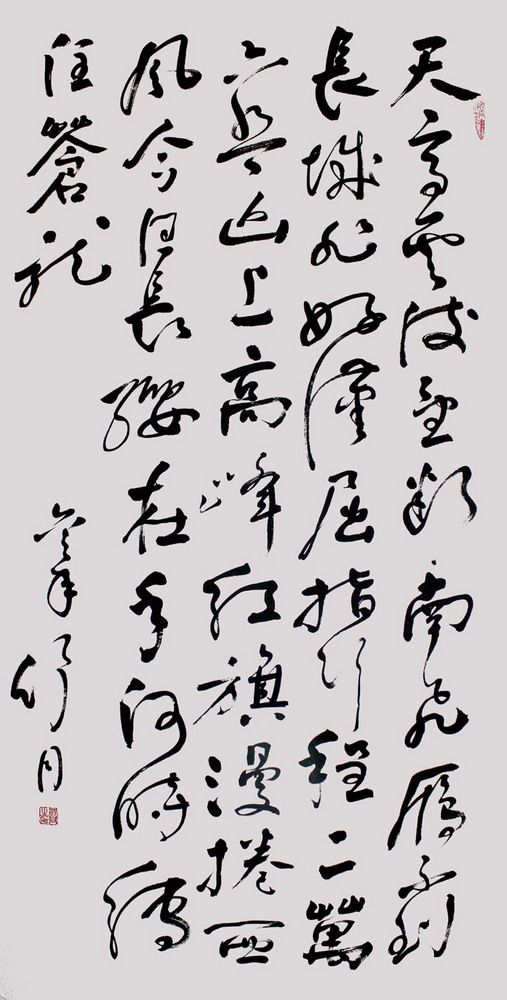 天高雲淡望斷南飛雁不到
長城非好漢屈指行程二萬
六盤山上高峰紅旗漫捲西
風今日長纓在手何時縛
住蒼龍
年 月